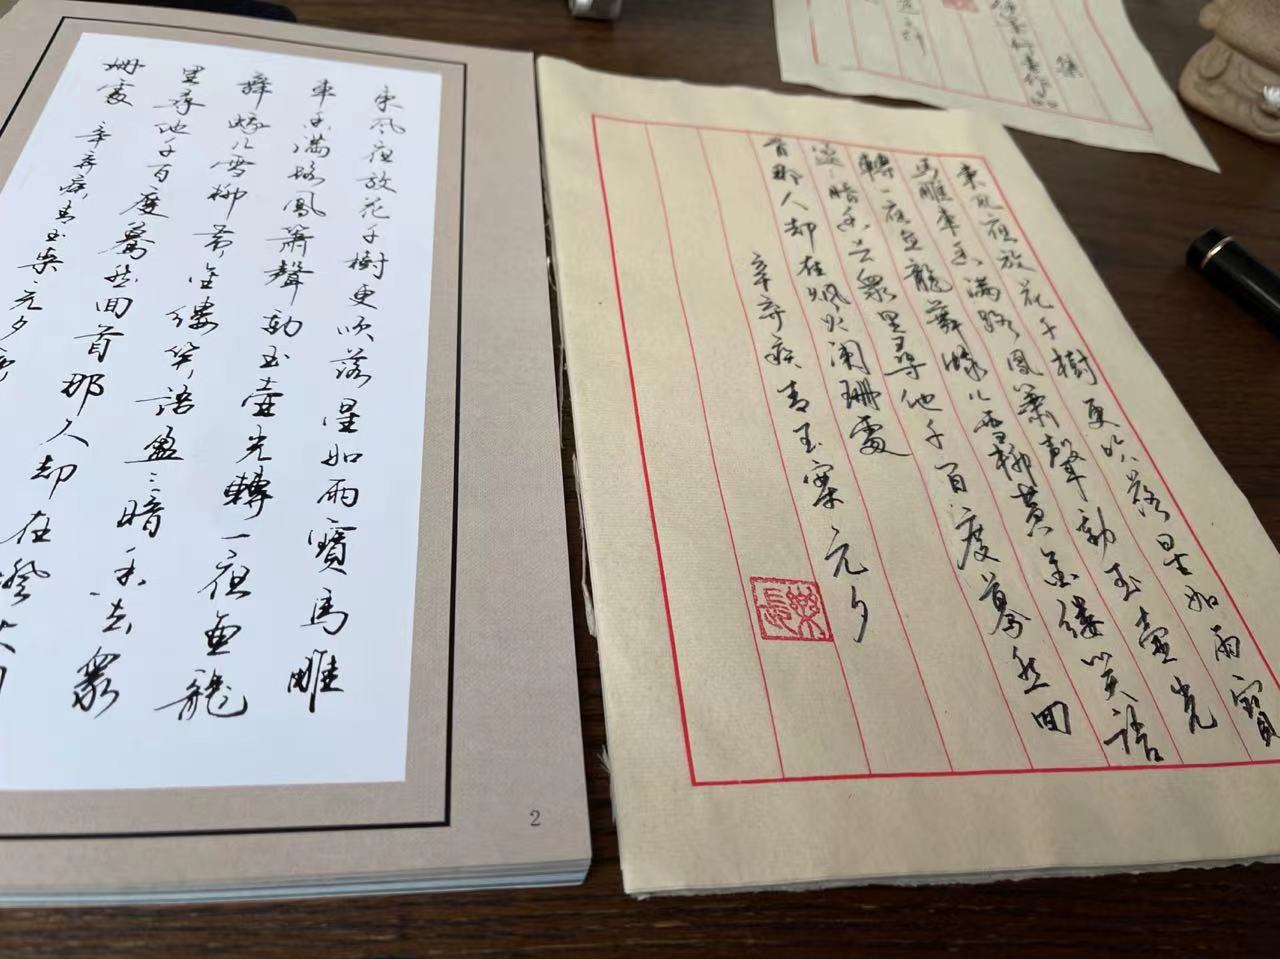 東風夜放花千樹更吹落星如雨寶馬雕
車香满路鳳簫聲動玉壺光轉一夜魚龍
舞蛾儿雪柳黄金缕笑語盈:暗香去衆
里尋他千百度驀然回首那人却在燈火
珊處 辛弃疾青玉案·元夕
2
東风夜放花千樹更吹落星如雨寶
馬雕車香满路鳳箫聲動玉壺光
轉一夜魚龍舞蛾儿雪柳黄金缕笑語
盈:暗香去衆里尋他千百度驀然回
首那人却在灯火阑珊處
辛弃疾青玉案元夕